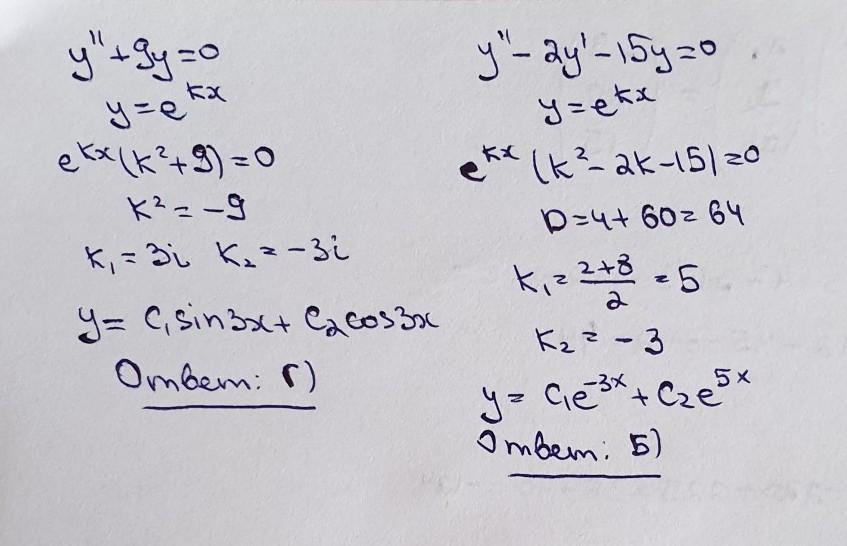 y''+9y=0
y=e^{kx}
e^{kx}(k²+9)=0
k²=-9
k₁=3i k₂=-3i
y= C₁sin3x+C₂cos3x
Ответ: г)
y''-2y'-15y=0
y=e^{kx}
e^{kx}(k²-2k-15)=0
D=4+60=64
k₁= \frac{2+8}{2} =5
k₂=-3
y= C₁e^{-3x}+C₂e^{5x}
Ответ: Б)